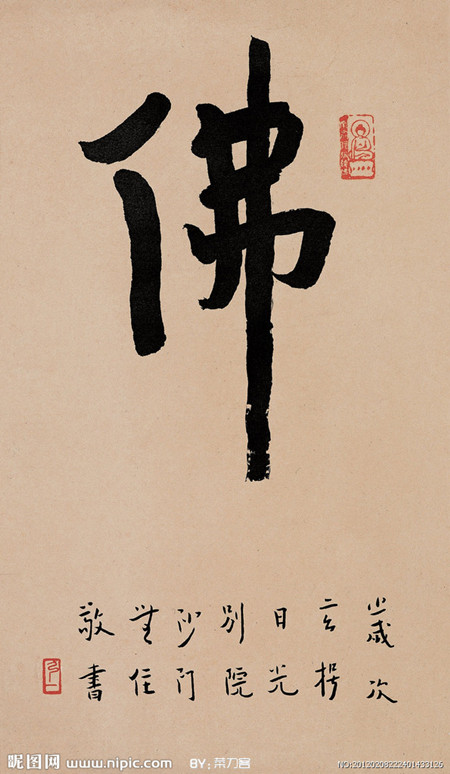 佛
歲次
玄枵
日光
別院
沙門
無住
敬書
昵图网 www.nipic.com
BY: 菜刀客
NO:20120208222401433126